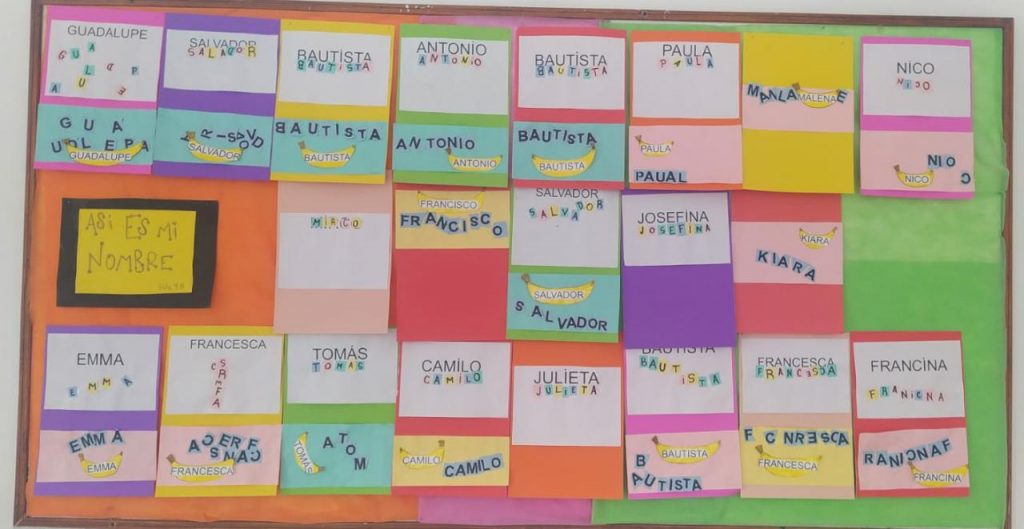 GUADALUPE
GUA
LDP
AUE
GUA
UDLEPA
GUADALUPE
SALVADOR
SALADOR
SALVADOR
BAUTÍSTA
BAUTISTA
BAUTISTA
BAUTISTA
ANTONÍO
ANTONIO
ANTONIO
ANTONIO
BAUTÍSTA
BAUTISTA
BAUTISTA
BAUTISTA
PAULA
PAULA
PAULA
PAUAL
MALENA
NÍCO
NICO
NIO
C
NICO
ASI ES MI
NOMBRE
MIRCO
FRANCISCO
FRANCISCO
SALVADOR
SALVADOR
SALVADOR
SALVADOR
JOSEFÍNA
JOSEFINA
KIARA
KIARA
EMMA
EMMA
EMMA
EMMA
FRANCESCA
FRANCESCA
TOMÁS
TOMAS
ATOM
TOMÁS
CAMÍLO
CAMILO
CAMILO
CAMILO
JULÍETA
JULIETA
BAUTISTA
BAUTISTA
BAUTISTA
B
AUTISTA
FRANCESCA
FRANCESCA
FCNRESCA
FRANCESCA
FRANCÍNA
FRANICNA
RANICNAF
FRANCINA